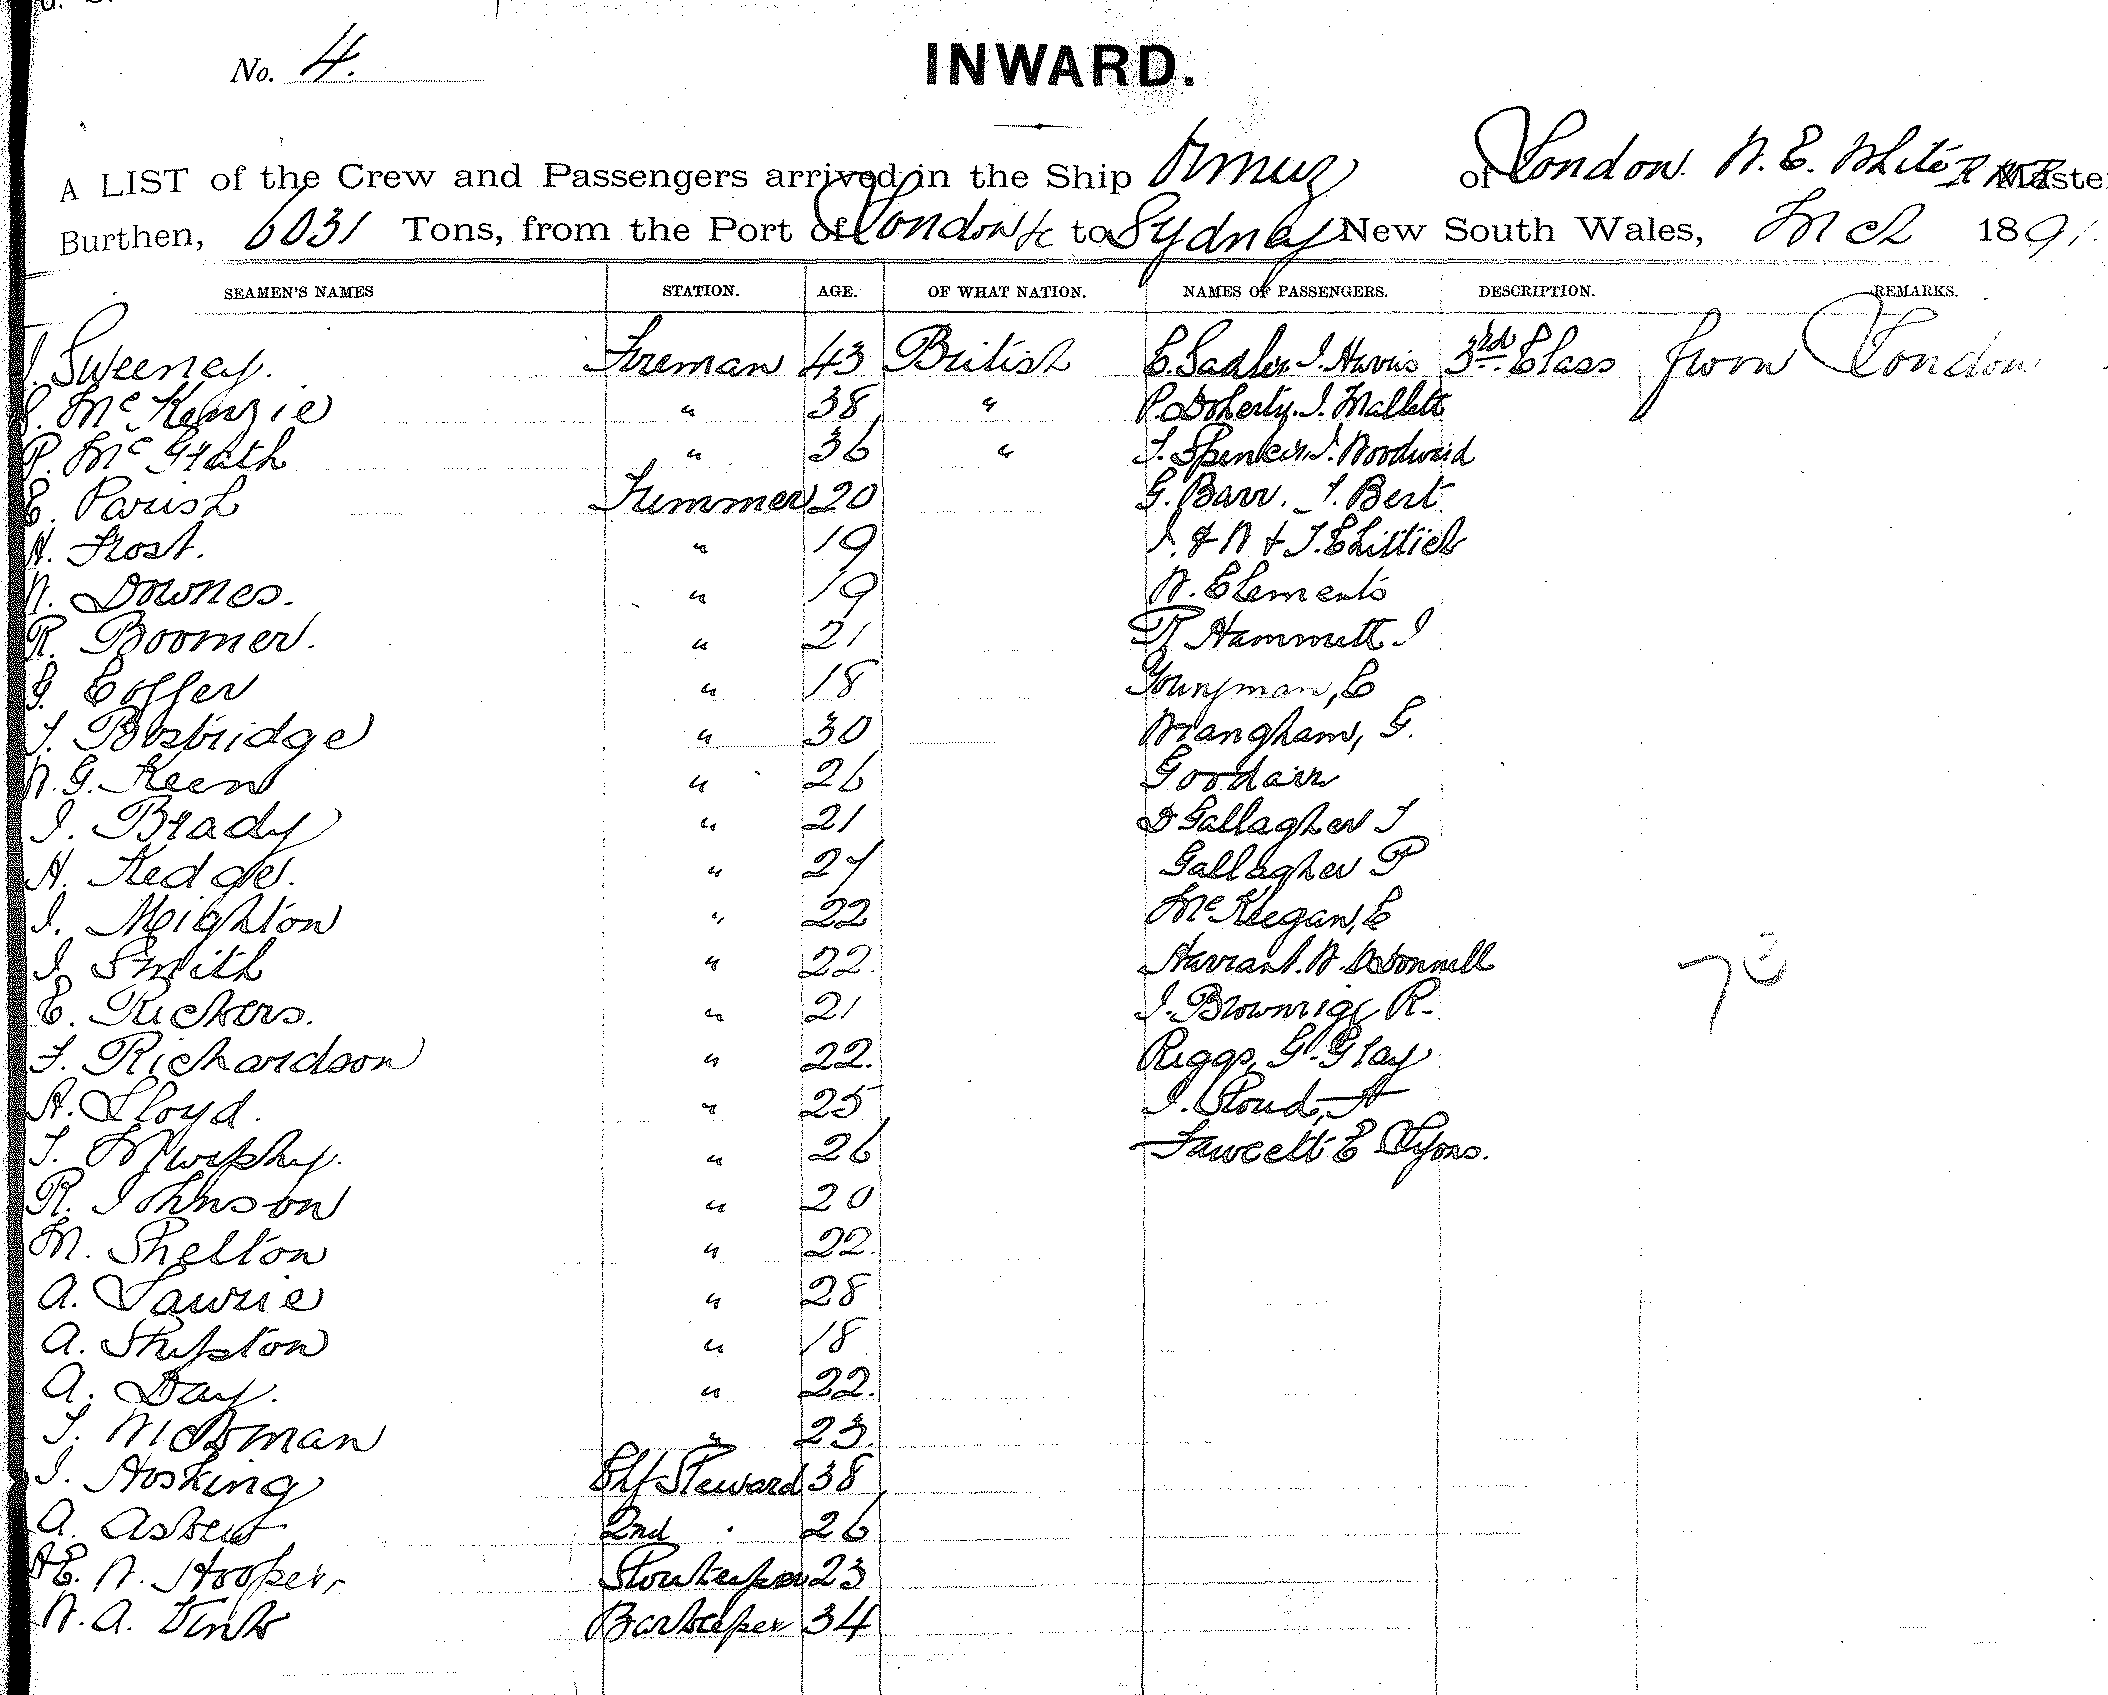 No. 4.
INWARD.
A LIST of the Crew and Passengers arrived in the Ship Ormuz of London W. E. White R.N.R. Master
Burthen, 6031 Tons, from the Port of London &c to Sydney New South Wales, Mch 1891.
SEAMEN'S NAMES STATION. AGE. OF WHAT NATION. NAMES OF PASSENGERS. DESCRIPTION. REMARKS.
J. Sweeney. Fireman 43 British E. Sadler. J. Harris 3rd Class from London
McKenzie " 38 " P. Doherty. J. Mallett
P. McGrath " 36 " F. Spencer. J. Woodward
E. Parish Trimmer 20 G. Barr. T. Bert
H. Frost. " 19 J. & W & J. Chittick
W. Downes. " 19 W. Clements
R. Boomer. " 21 R Hammett. J
G. Coffer " 18 Youngman, C
T. Bosbridge " 30 Wrangham, G.
W. G. Keen " 26 Goodair
J. Brady " 21 D Gallagher J
H. Kedge. " 27 Gallagher P
J. Meighton " 22 McKeegan, C
J. Smith " 22. Harrant. W. McDonnell
E. Rickers. " 21 J. Brownigg R.
F. Richardson " 22. Riggs, G. Gray
A. Lloyd. " 25 J. Stoud, A
T. Murphy. " 26 Fawcett E Lyons.
R. Johnson " 20
M. Shelton " 22.
A. Lawrie " 28
A. Shepton " 18
A. Day. " 22.
T. Wickman " 23.
J. Hosking Chf Steward 38
A. Askew 2nd " 26
A E. W. Hooper, Storekeeper 23
W. A. Vink Barkeeper 34